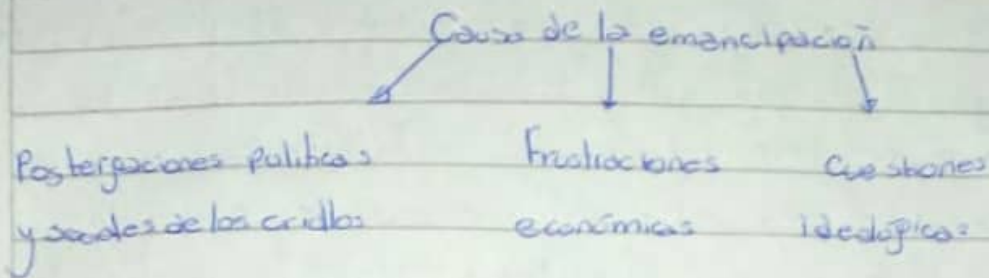 Causa de la emancipación
Postergaciones políticas
y sociales de los criollos
Frustraciones
económicas
Cuestiones
ideológicas